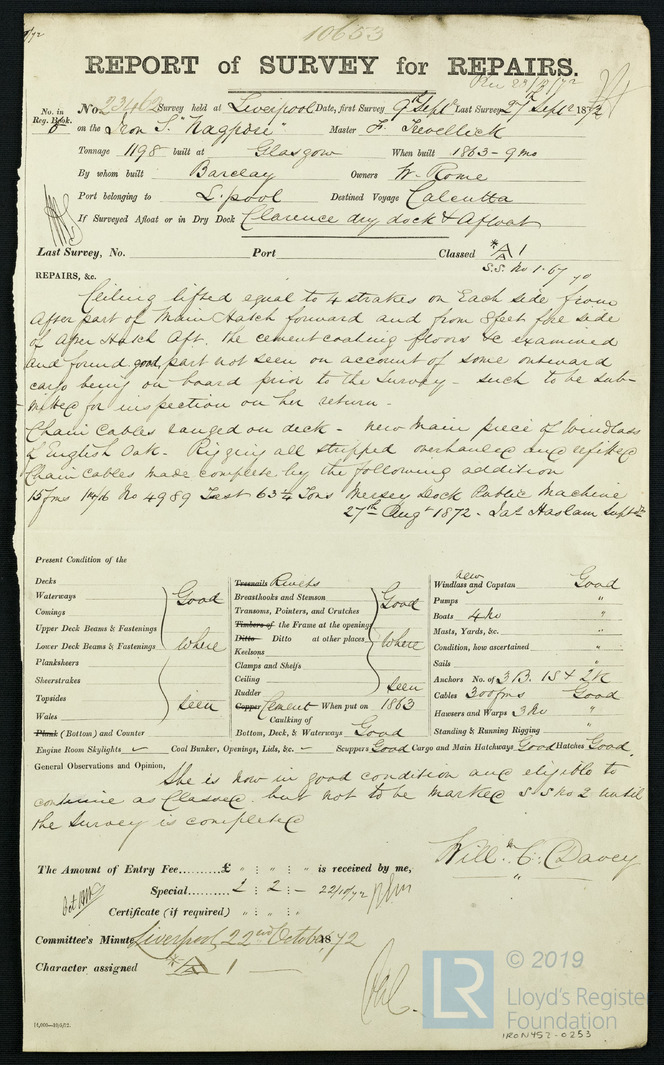 9/72
10653
REPORT of SURVEY for REPAIRS.
No. in Reg. Book. No. Survey held at Liverpool Date, first Survey 9th Septr Last Survey 27 Septr 1872
on the Iron S. "Nagpore" Master F. Trevellick
Tonnage 1198 built at Glasgow When built 1863 - 9 mo
By whom built Barclay Owners W. Rome
Port belonging to L.pool Destined Voyage Calcutta
If Surveyed Afloat or in Dry Dock Clarence dry dock & Afloat
Last Survey, No. Port Classed *A 1
S.S. No 1-67
REPAIRS, &c.
Ceiling lifted equal to 4 strakes on Each side from
After part of Main Hatch forward and from 8 feet fore side
of After Hatch Aft. the cement coating floors &c examined
and found good, part not seen on account of some outward
cargo being on board prior to the Survey - such to be sub-
mitted for inspection on her return -
Chain Cables ranged on deck - new Main piece of Windlass
of English Oak - Rigging all stripped overhauled and refitted
Chain Cables made complete by the following addition
15 fms 1 14/16 No 4989 Test 63 1/4 Tons Mersey Dock Public Machine
27th Augt 1872 - Jas Haslam Supdt
Present Condition of the
Decks
Waterways
Comings
Upper Deck Beams & Fastenings
Lower Deck Beams & Fastenings
Planksheers
Sheerstrakes
Topsides
Wales
Plank (Bottom) and Counter
Good
where
seen
Treenails Rivets
Breasthooks and Stemson
Transoms, Pointers, and Crutches
Timbers of the Frame at the openings
Ditto Ditto at other places
Keelsons
Clamps and Shelfs
Ceiling
Rudder
Good
where
seen
Copper Cement When put on 1863
Caulking of
Bottom, Deck, & Waterways Good
new
Windlass and Capstan Good
Pumps "
Boats 4 No "
Masts, Yards, &c. "
Condition, how ascertained "
Sails "
Anchors No. of 3 B. 1 S & 2 K
Cables 300 fms Good
Hawsers and Warps 3 No "
Standing & Running Rigging "
Engine Room Skylights Coal Bunker, Openings, Lids, &c. Scuppers Good Cargo and Main Hatchways Good Hatches Good.
General Observations and Opinion,
She is now in good condition and eligible to
continue as Classed but not to be marked S.S No 2 until
the Survey is completed
Willm C. Davey
The Amount of Entry Fee £ " : " : " is received by me,
Special 2 : 2 : - 22/10/72
Certificate (if required) " : " : "
Committee's Minute Liverpool 22nd October 1872
Character assigned *A 1
© 2019
LR Lloyd's Register
Foundation
IRON457-0253